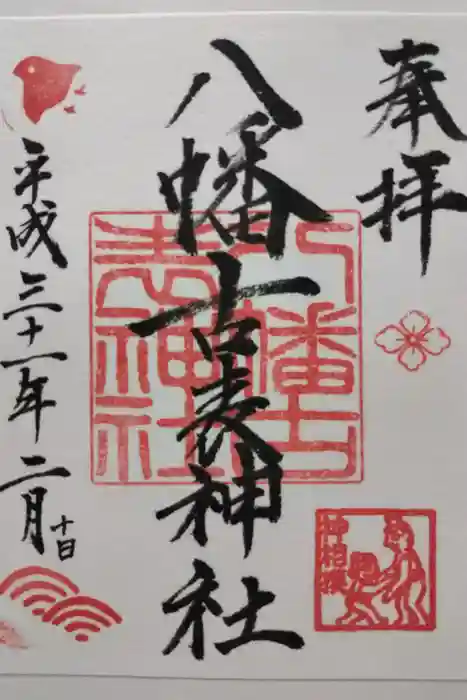 奉拝
八幡古表神社
平成三十一年二月十日
八幡古表神社
神相撲